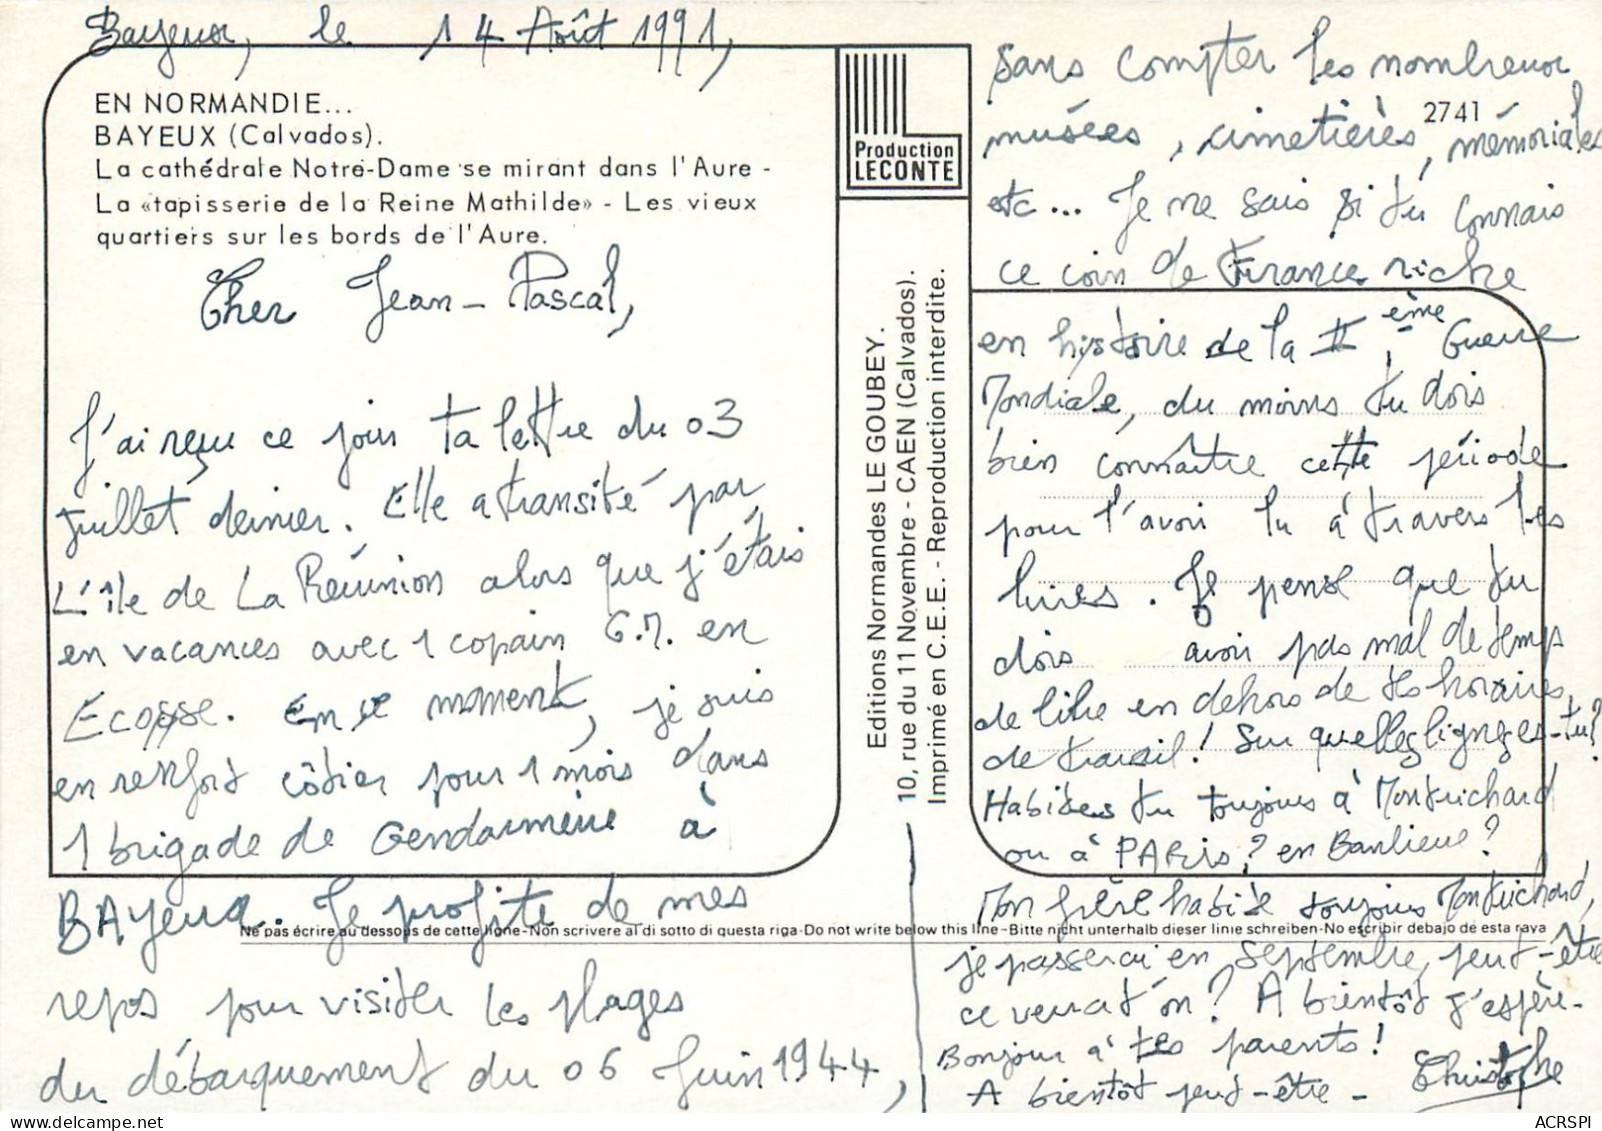 Bayeux, le 14 Août 1991,
EN NORMANDIE...
BAYEUX (Calvados).
La cathédrale Notre-Dame se mirant dans l'Aure -
La «tapisserie de la Reine Mathilde» - Les vieux
quartiers sur les bords de l'Aure.
Cher Jean-Pascal,
J'ai reçu ce jour ta lettre du 03
juillet dernier. Elle a transité par
L'île de La Réunion alors que j'étais
en vacances avec 1 copain G.M. en
Ecosse. En ce moment, je suis
en renfort côtier pour 1 mois dans
1 brigade de Gendarmerie à
BAYeux. Je profite de mes
repos pour visiter les plages
du débarquement du 06 Juin 1944,
Production
LECONTE
Editions Normandes LE GOUBEY.
10, rue du 11 Novembre - CAEN (Calvados).
Imprimé en C.E.E. - Reproduction interdite.
2741
sans compter les nombreux
musées, cimetières, mémoriales
etc... Je ne sais si tu connais
ce coin de France riche
en hystoire de la II ème Guerre
Mondiale, du moins tu dois
bien connaître cette période
pour l'avoir lu à travers les
livres. Je pense que tu
dois avoir pas mal de temps
de libre en dehors de tes horaires
de travail! Sur quelles lignes es-tu?
Habites tu toujours à Montrichard
ou à PARis? en Banlieue?
Mon frère habite toujours Montrichard,
Ne pas écrire au dessous de cette ligne-Non scrivere al di sotto di questa riga-Do not write below this line-Bitte nicht unterhalb dieser linie schreiben-No escribir debajo de esta raya
je passerai en Septembre, peut-être
ce verrat'on? A bientôt j'espère.
Bonjour à tes parents!
A bientôt peut-être - Christophe
ACRSPI